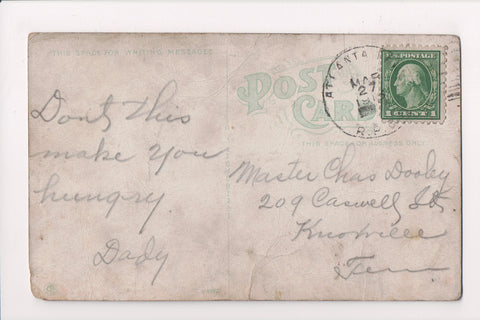 THIS SPACE FOR WRITING MESSAGES
POST CARD
THIS SPACE FOR ADDRESS ONLY
ATLANTA
MAR
27
R.P.
U.S. POSTAGE
1 CENT 1
Dont this
make you
hungry
Dady
Master Chas Dooley
209 Caswell St
Knoxville
Tenn